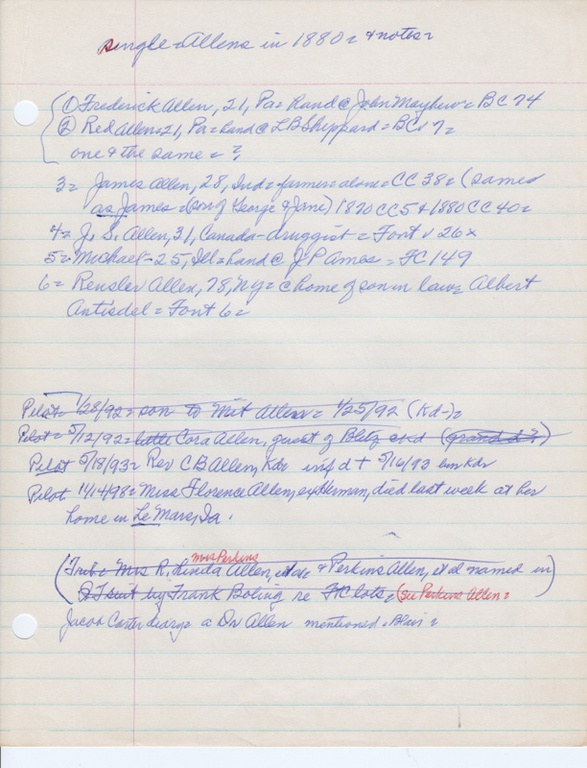 single Allens in 1880 = & notes =
① Frederick Allen, 21, Pa = hand @ John Mayhew = BC 74
② Red Allen = 21, Pa = hand @ L B Sheppard = BC 7 =
one & the same = ?
3 = James Allen, 28, Ind = farmer = alone = CC 38 = (same
as James = (son of George & Jane) 1870 CC5 & 1880 CC 40 =
4 = J. S. Allen, 31, Canada - druggist = Font 26
5 = Michael - 25, Ill = hand @ J P Ames = FC 149
6 = Rensler Allen, 78, Ny = @ home of son in law = Albert
Antisdel = Font 6 =
Pilot = 1/28/92 = son to Mit Allen = 1/25/92 (Kd-) =
Pilot = 5/12/92 = little Cora Allen, guest of Bletz (grand d?)
Pilot 5/18/93 = Rev C B Allen, Kdr inf d + 5/16/93 Kdr
Pilot 11/14/98 = Miss Florence Allen, sy Herman, died last week at her
home in Le Mars, Ia.
Mrs Perkins
(Tribe Mrs R. Linda Allen, & Perkins Allen, et al named in)
suit by Frank Boling re FC lots = (see Perkins Allen =
Jacob Carter diary = a Dr Allen mentioned = Blair =